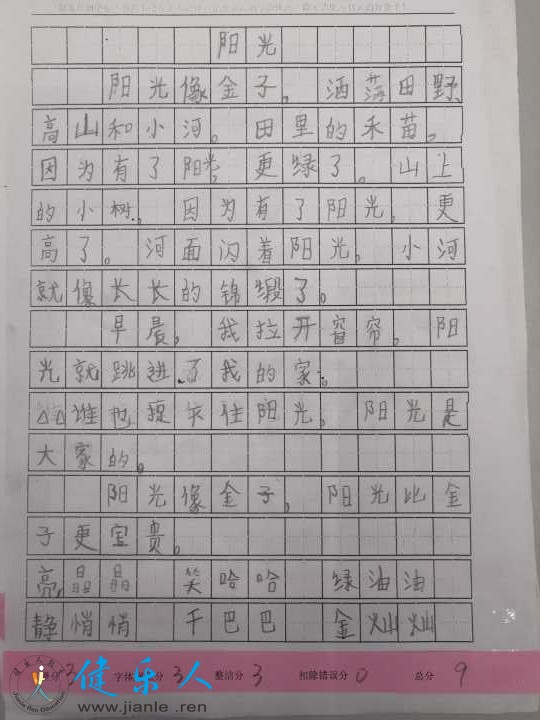 阳光
阳光像金子。洒荡田野、
高山和小河。田里的禾苗。
因为有了阳光,更绿了。山上
的小树.。因为有了阳光,更
高了。河面闪着阳光。小河
就像长长的锦缎了。
早晨。我拉开窗帘。阳
光就跳进.了我的家.。
谁也捉不住阳光。阳光是
大家的。
阳光像金子。阳光比金
子更宝贵。
亮晶晶 笑哈哈 绿油油
静悄悄 干巴巴 金灿灿
3 字体 3 整洁分 3 扣除错误分 0 总分 9
健乐人
www.jianle.ren